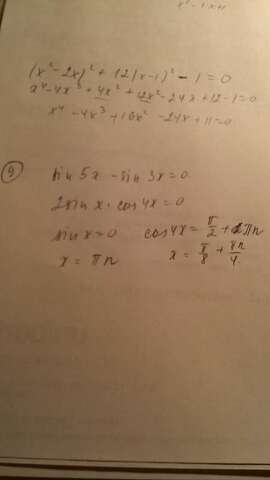 (x²-2x)² + 12(x-1)² - 1 = 0
x⁴-4x³+4x²+12x²-24x+12-1=0
x⁴-4x³+16x²-24x+11=0
9) sin 5x - sin 3x = 0
2 sin x · cos 4x = 0
sin x = 0 cos 4x = π/2 + πn
x = πn x = π/8 + πn/4